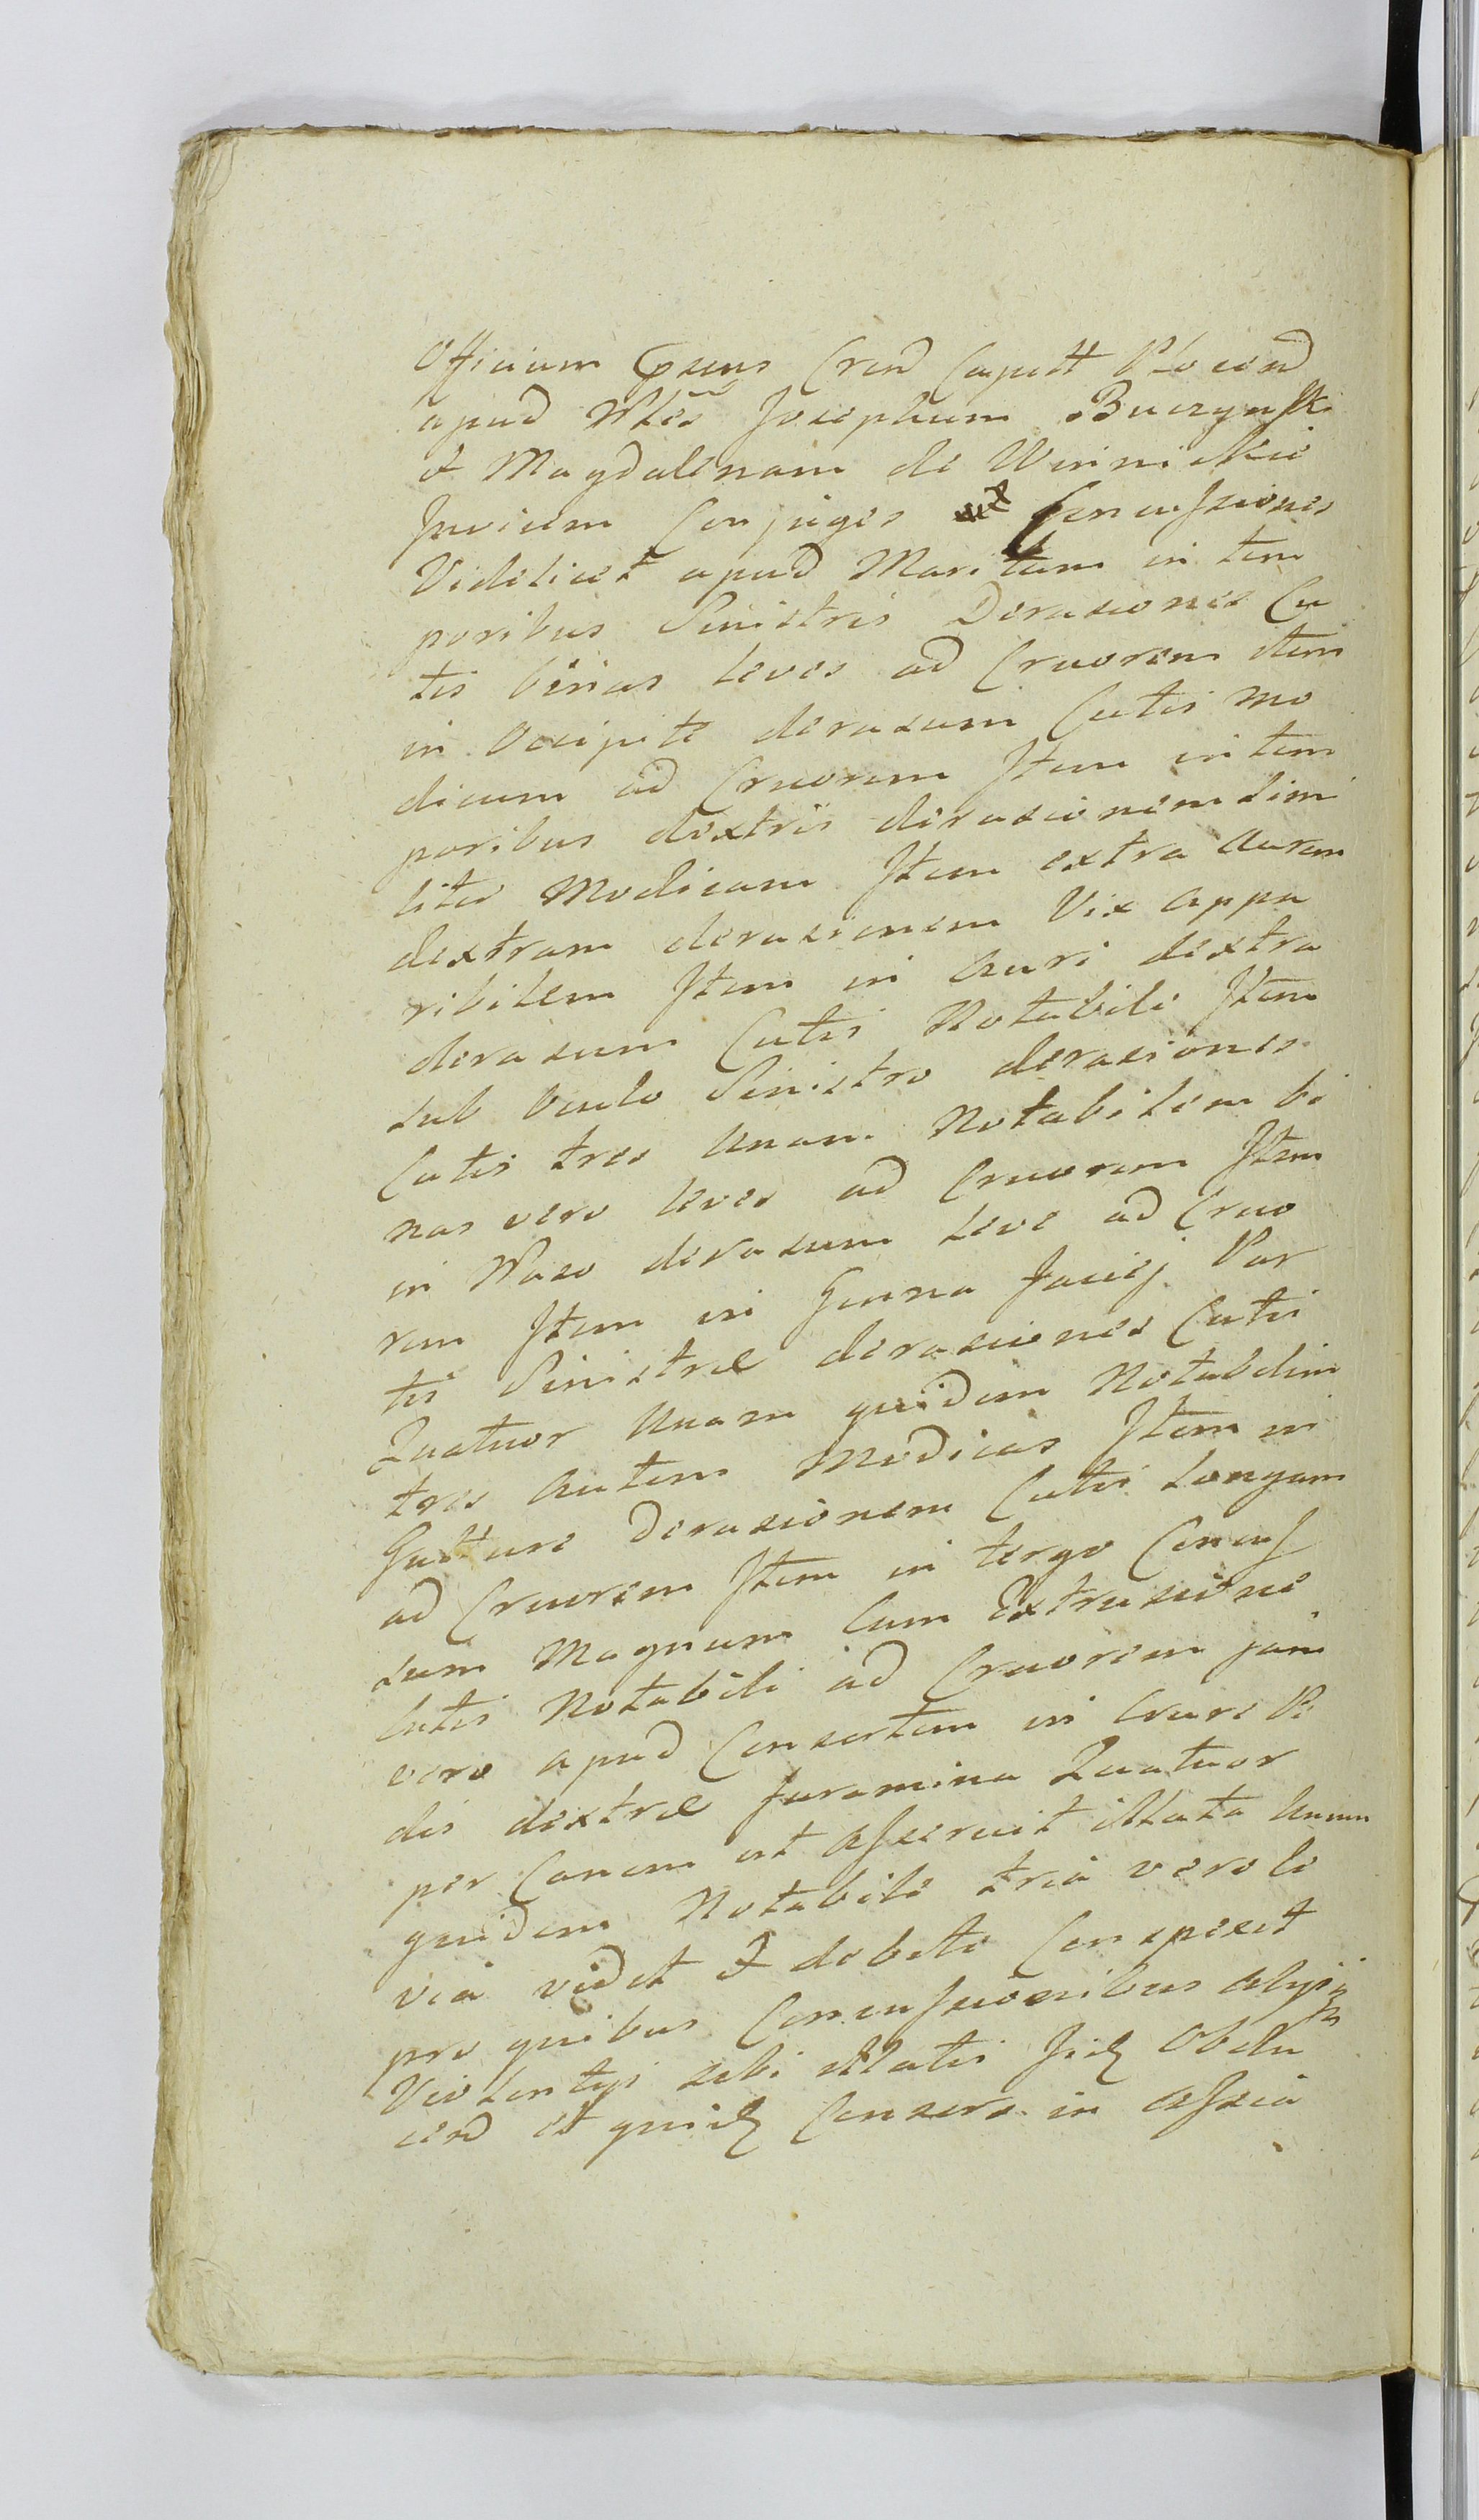 Officium Pnsens Crend Capitt Plocend
apud Mfcos Josephum Buczynski
et Magdalenam de Winnickie
Invicem Conjuges Concussiones
Videlicet apud Maritum in tem
poribus Sinistris Derasiones Cu
tis binas leves ad Cruorem item
in Occipite derasum Cutis mo
dicum ad Cruorem Item in tem
poribus dextris derasionem simi
liter Modicam Item extra aurem
dextram derasionem Vix appa
ribilem Item in Auri dextra
derasum Cutis Notabile Item
sub Oculo Sinistro derasiones
Cutis tres Unam Notabilem bi
nas vero leves ad Cruorem Item
in Naso derasum leve ad Cruo
rem Item in Genna faciej Par
tis Sinistrae derasiones Cutis
Quatuor Unam quidem Notabilem
tres Autem Modicas Item in
Gutture Derasionem Cutis Longam
ad Cruorem Item in tergo Concus
sum Magnum Cum Extrusione
Cutis Notabili ad Cruorem jam
vero apud Consortem in Crure Pe
dis dextrae foramina Quatuor
per Canem ut Asseruit illata Unum
quidem Notabile tria vero le
via vidit et debite Conspexit
pro quibus Concussionibus alijsq
Violentijs sibi illatis
cend et Consers in Assia